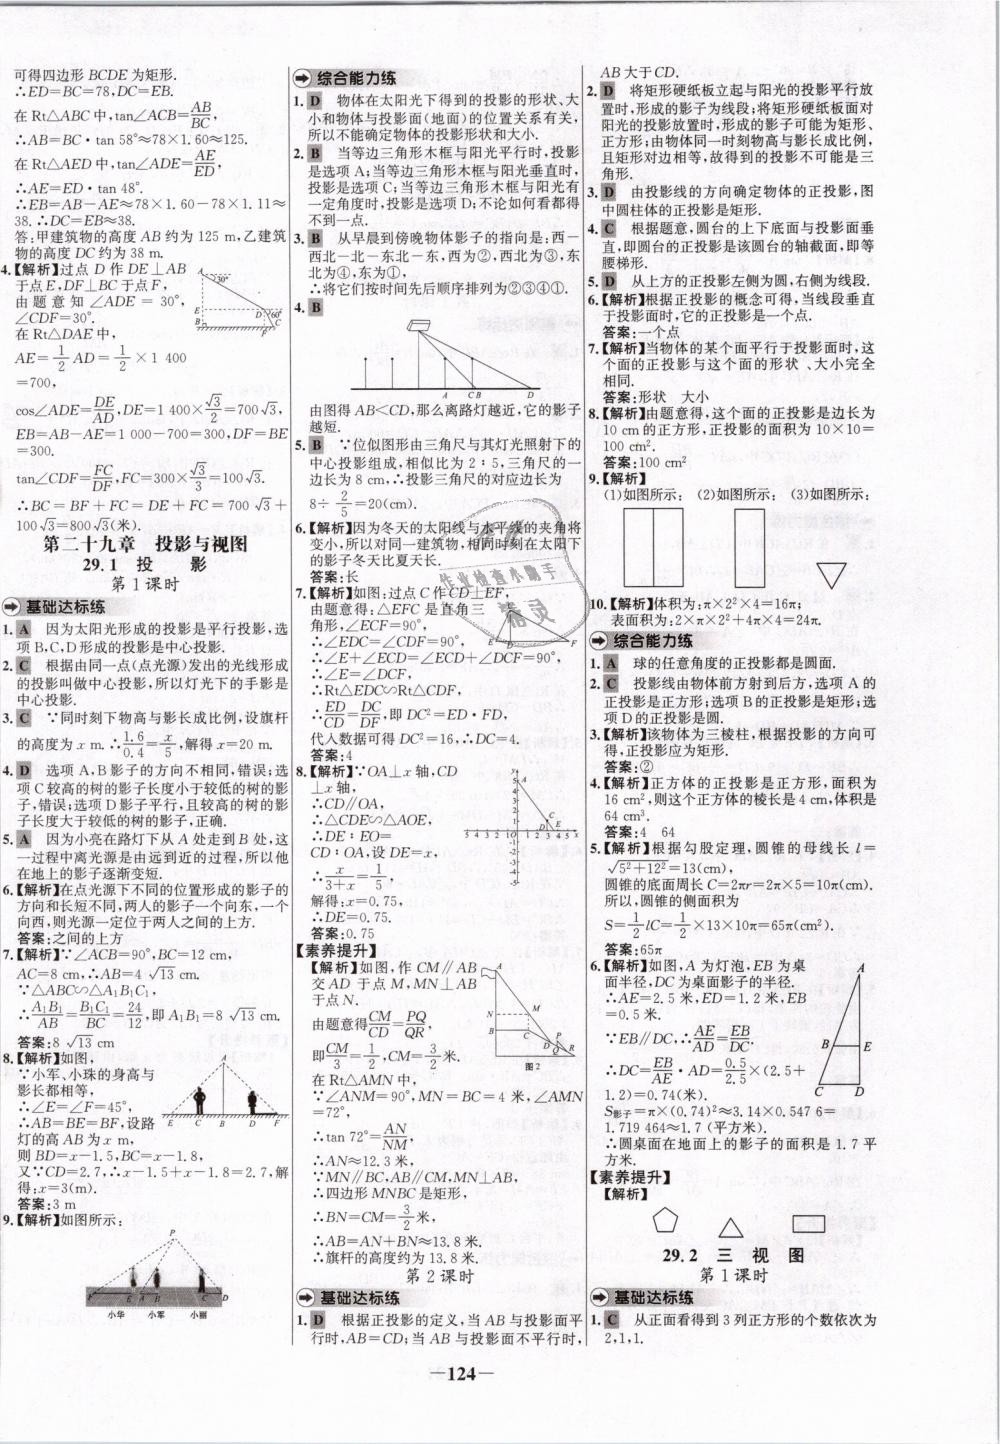 可得四边形 BCDE 为矩形.
∴ED=BC=78,DC=EB.
在 Rt△ABC 中,tan∠ACB=AB/BC,
∴AB=BC·tan 58°≈78×1.60≈125.
在 Rt△AED 中,tan∠ADE=AE/ED,
∴AE=ED·tan 48°.
∴EB=AB-AE≈78×1.60-78×1.11≈
38.∴DC=EB≈38.
答:甲建筑物的高度 AB 约为 125 m,乙建筑
物的高度 DC 约为 38 m.
4.【解析】过点 D 作 DE⊥AB
于点 E,DF⊥BC 于点 F,
由题意知∠ADE=30°,
∠CDF=30°.
在 Rt△DAE 中,
AE=1/2AD=1/2×1 400
=700,
cos∠ADE=DE/AD,DE=1 400×√3/2=700√3,
EB=AB-AE=1 000-700=300,DF=BE
=300.
tan∠CDF=FC/DF,FC=300×√3/3=100√3.
∴BC=BF+FC=DE+FC=700√3+
100√3=800√3(米).
第二十九章 投影与视图
29.1 投 影
第 1 课时
基础达标练
1. A 因为太阳光形成的投影是平行投影,选
项 B,C,D 形成的投影是中心投影.
2. C 根据由同一点(点光源)发出的光线形成
的投影叫做中心投影,所以灯光下的手影是
中心投影.
3. C ∵同时刻下物高与影长成比例,设旗杆
的高度为 x m.∴1.6/0.4=x/5,解得 x=20 m.
4. D 选项 A,B 影子的方向不相同,错误;选
项 C 较高的树的影子长度小于较低的树的影
子,错误;选项 D 影子平行,且较高的树的影
子长度大于较低的树的影子,正确.
5. A 因为小亮在路灯下从 A 处走到 B 处,这
一过程中离光源是由远到近的过程,所以他
在地上的影子逐渐变短.
6.【解析】在点光源下不同的位置形成的影子的
方向和长短不同,两人的影子一个向东,一个
向西,则光源一定位于两人之间的上方.
答案:之间的上方
7.【解析】∵∠ACB=90°,BC=12 cm,
AC=8 cm,∴AB=4√13 cm.
∵△ABC∽△A1B1C1,
∴A1B1/AB=B1C1/BC=24/12,即 A1B1=8√13 cm.
答案:8√13 cm
8.【解析】如图,
∵小军、小珠的身高与
影长都相等,
∴∠E=∠F=45°,
∴AB=BE=BF,设路
灯的高 AB 为 x m,
则 BD=x-1.5,BC=x-1.8,
又∵CD=2.7,∴x-1.5+x-1.8=2.7,解
得:x=3(m).
答案:3 m
9.【解析】如图所示:
小华 小军 小丽
综合能力练
1. D 物体在太阳光下得到的投影的形状、大
小和物体与投影面(地面)的位置关系有关,
所以不能确定物体的投影形状和大小.
2. B 当等边三角形木框与阳光平行时,投影
是选项 A;当等边三角形木框与阳光垂直时,
投影是选项 C;当等边三角形木框与阳光有
一定角度时,投影是选项 D;不论如何看都得
不到一点.
3. B 从早晨到傍晚物体影子的指向是:西—
西北—北—东北—东,西为②,西北为③,东
北为④,东为①,
∴将它们按时间先后顺序排列为②③④①.
4. B
A CB D
由图得 AB<CD,那么离路灯越近,它的影子
越短.
5. B ∵位似图形由三角尺与其灯光照射下的
中心投影组成,相似比为 2∶5,三角尺的一
边长为 8 cm,∴投影三角尺的对应边长为
8÷2/5=20(cm).
6.【解析】因为冬天的太阳线与水平线的夹角将
变小,所以对同一建筑物,相同时刻在太阳下
的影子冬天比夏天长.
答案:长
7.【解析】如图:过点 C 作 CD⊥EF,
由题意得:△EFC 是直角三
角形,∠ECF=90°,
∴∠EDC=∠CDF=90°,
∴∠E+∠ECD=∠ECD+∠DCF=90°,
∴∠E=∠DCF,
∴Rt△EDC∽Rt△CDF,
∴ED/CD=DC/DF,即 DC²=ED·FD,
代人数据可得 DC²=16,∴DC=4.
答案:4
8.【解析】∵OA⊥x 轴,CD
⊥x 轴,
∴CD∥OA,
∴△CDE∽△AOE,
∴DE∶EO=
CD∶OA,设 DE=x,
∴x/(3+x)=1/5,
解得:x=0.75,
∴DE=0.75.
答案:0.75
【素养提升】
【解析】如图,作 CM∥AB
交 AD 于点 M,MN⊥AB
于点 N.
由题意得CM/CD=PQ/QR,
即CM/3=1/2,CM=3/2米.
图2
在 Rt△AMN 中,
∵∠ANM=90°,MN=BC=4 米,∠AMN
=72°,
∴tan 72°=AN/NM,
∴AN≈12.3 米,
∵MN∥BC,AB∥CM,MN⊥AB,
∴四边形 MNBC 是矩形,
∴BN=CM=3/2米,
∴AB=AN+BN≈13.8 米.
∴旗杆的高度约为 13.8 米.
第 2 课时
基础达标练
1. D 根据正投影的定义,当 AB 与投影面平
行时,AB=CD;当 AB 与投影面不平行时,
AB 大于 CD.
2. D 将矩形硬纸板立起与阳光的投影平行放
置时,形成的影子为线段;将矩形硬纸板面对
阳光的投影放置时,形成的影子可能为矩形、
正方形;由物体同一时刻物高与影长成比例,
且矩形对边相等,故得到的投影不可能是三
角形.
3. D 由投影线的方向确定物体的正投影,图
中圆柱体的正投影是矩形.
4. C 根据题意,圆台的上下底面与投影面垂
直,即圆台的正投影是该圆台的轴截面,即等
腰梯形.
5. D 从上方的正投影左侧为圆,右侧为线段.
6.【解析】根据正投影的概念可得,当线段垂直
于投影面时,它的正投影是一个点.
答案:一个点
7.【解析】当物体的某个面平行于投影面时,这
个面的正投影与这个面的形状 、大小完全
相同.
答案:形状 大小
8.【解析】由题意得,这个面的正投影是边长为
10 cm 的正方形,正投影的面积为 10×10=
100 cm².
答案:100 cm²
9.【解析】
(1)如图所示: (2)如图所示: (3)如图所示:
10.【解析】体积为:π×2²×4=16π;
表面积为:2×π×2²+4π×4=24π.
综合能力练
1. A 球的任意角度的正投影都是圆面.
2. C 投影线由物体前方射到后方,选项 A 的
正投影是正方形;选项 B 的正投影是矩形;选
项 D 的正投影是圆.
3.【解析】该物体为三棱柱,根据投影的方向可
得,正投影应为矩形.
答案:②
4.【解析】正方体的正投影是正方形,面积为
16 cm²,则这个正方体的棱长是 4 cm,体积是
64 cm³.
答案:4 64
5.【解析】根据勾股定理,圆锥的母线长 l=
√(5²+12²)=13(cm),
圆锥的底面周长 C=2πr=2π×5=10π(cm).
所以,圆锥的侧面积为
S=1/2lC=1/2×13×10π=65π(cm²).
答案:65π
6.【解析】如图,A 为灯泡,EB 为桌
面半径,DC 为桌面影子的半径.
∴AE=2.5 米,ED=1.2 米,EB
=0.5 米.
∵EB∥DC,∴AE/AD=EB/DC.
∴DC=EB/AE·AD=0.5/2.5×(2.5+
1.2)=0.74(米).
S影子=π×(0.74)²≈3.14×0.547 6=
1.719 464≈1.7 (平方米).
∴圆桌面在地面上的影子的面积是 1.7 平
方米.
【素养提升】
【解析】
29.2 三 视 图
第 1 课时
基础达标练
1. C 从正面看得到 3 列正方形的个数依次为
2,1,1.
—124—